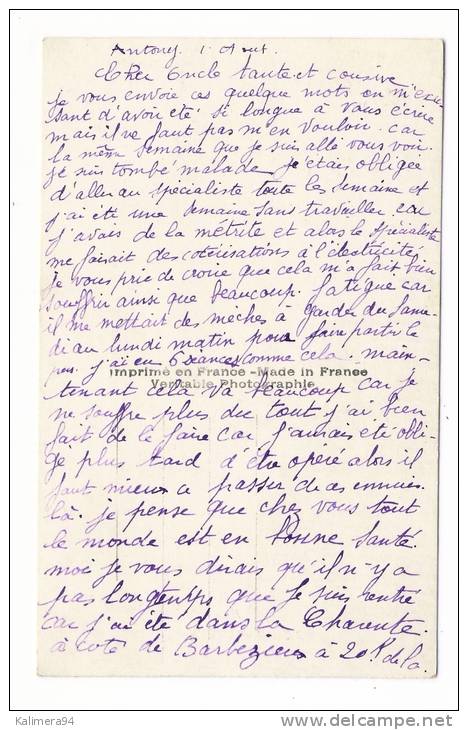 Antony 1 Aout.
Cher Oncle tante et cousine
je vous envoie ces quelque mots en m'excu
sant d'avoir été si longue à vous écrire
mais il ne faut pas m'en vouloir car
la même semaine que je suis allé vous voir
je suis tombé malade je étais obligée
d'aller au spécialiste toute les semaine et
j'ai été une semaine sans travailler car
j'avais de la métrite et alors le spécialiste
me faisait des cotérisations à l'électricité
je vous prie de croire que cela m'a fait bien
souffrir ainsi que beaucoup fatigue car
il me mettait des mèches à garder du same
di au lundi matin pour faire partir le
pus. j'ai eu 6 séances comme cela. main-
Imprimé en France - Made in France
Véritable Photographie
tenant cela va beaucoup car je
ne souffre plus du tout j'ai bien
fait de le faire car j'aurais été obli-
gé plus tard d'être opéré alors il
faut mieux a passer de ces ennuis
là. je pense que chez vous tout
le monde est en bonne santé.
moi je vous dirais qu'il n'y a
pas longtemps que je suis rentré
car j'ai été dans la Charente.
à coté de Barbezieux à 20 de la
Kalimera94